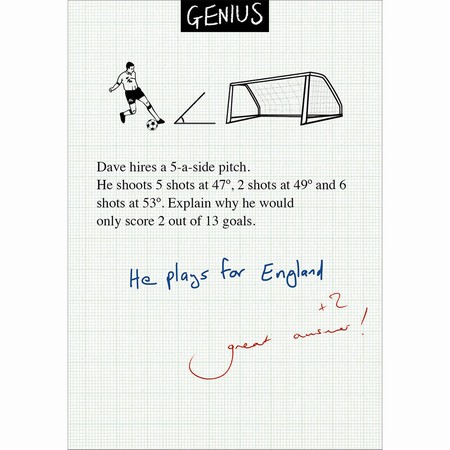 GENIUS
Dave hires a 5-a-side pitch.
He shoots 5 shots at 47º, 2 shots at 49º and 6
shots at 53º. Explain why he would
only score 2 out of 13 goals.
He plays for England
+2
great answer!